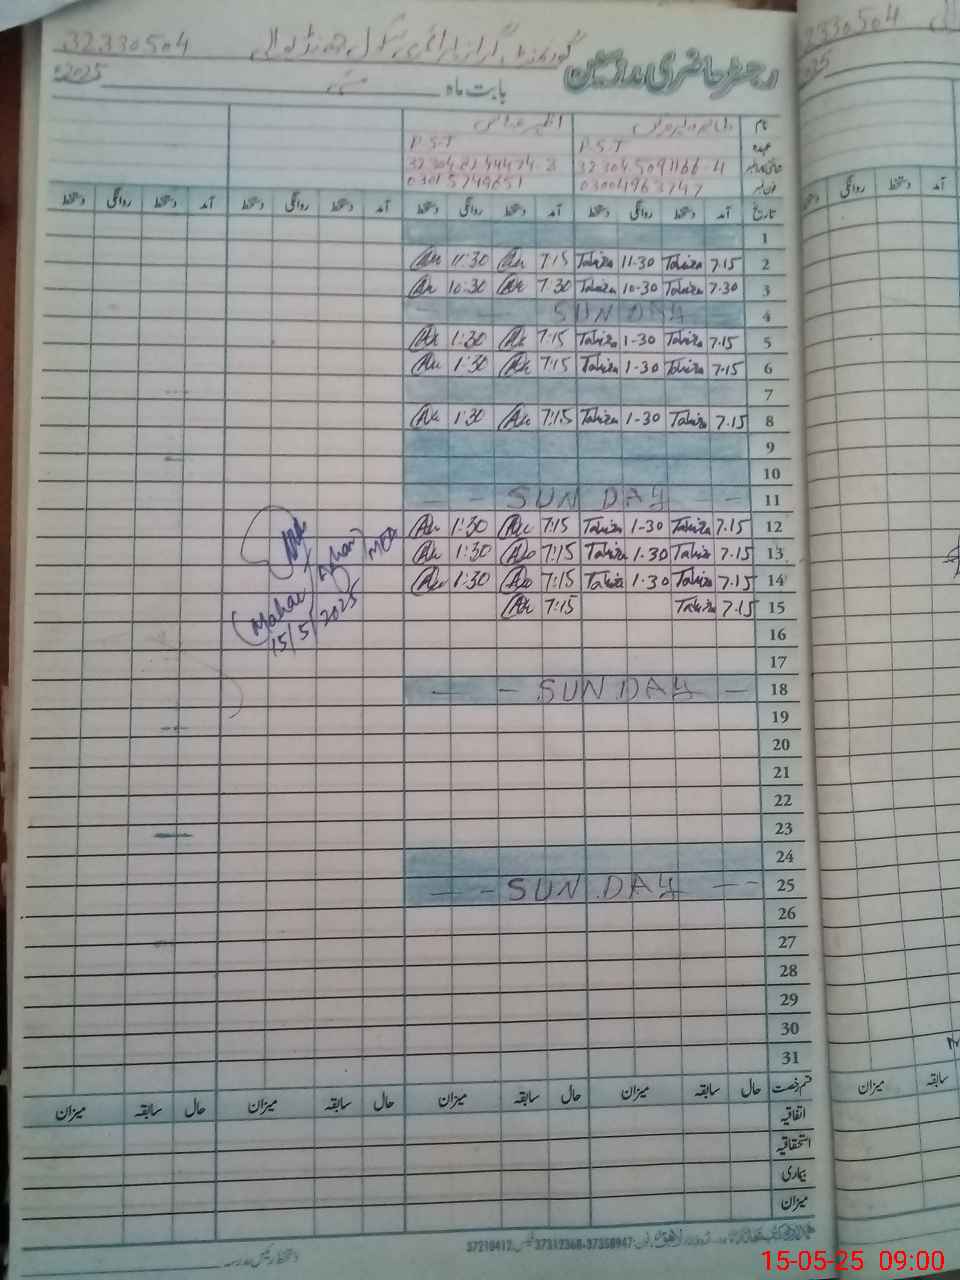 32330504 گورنمنٹ گرلز پرائمری سکول
رجسٹر حاضری ملازمین
بابت ماہ مئی 2025ء
نام
عہدہ P.S.T P.S.T
شناختی کارڈ نمبر
فون نمبر 03004963747 03015749651
تاریخ آمد دستخط روانگی دستخط آمد دستخط روانگی دستخط آمد دستخط روانگی دستخط آمد دستخط روانگی دستخط
1
2 7.15 Tahira 11-30 Tahira 7:15 11:30
3 7.30 Tahira 10-30 Tahira 7:30 10:30
4 SUNDAY
5 7.15 Tahira 1-30 Tahira 7:15 1:30
6 7.15 Tahira 1-30 Tahira 7:15 1:30
7
8 7.15 Tahira 1-30 Tahira 7:15 1:30
9
10
11 SUNDAY
12 7.15 Tahira 1-30 Tahira 7:15 1:30
13 7.15 Tahira 1-30 Tahira 7:15 1:30
14 7.15 Tahira 1-30 Tahira 7:15 1:30
15 7.15 Tahira 7:15
Mahar Azhar MEA
15/5/2025
16
17
18 SUNDAY
19
20
21
22
23
24
25 SUNDAY
26
27
28
29
30
31
قسم رخصت حال سابقہ میزان حال سابقہ میزان حال سابقہ میزان حال سابقہ میزان
اتفاقیہ
استحقاقیہ
بیماری
میزان
دستخط رئیس مدرسہ
37210412 37312368-37358947
32330504
2025
آمد دستخط روانگی
سابقہ میزان
15-05-25 09:00